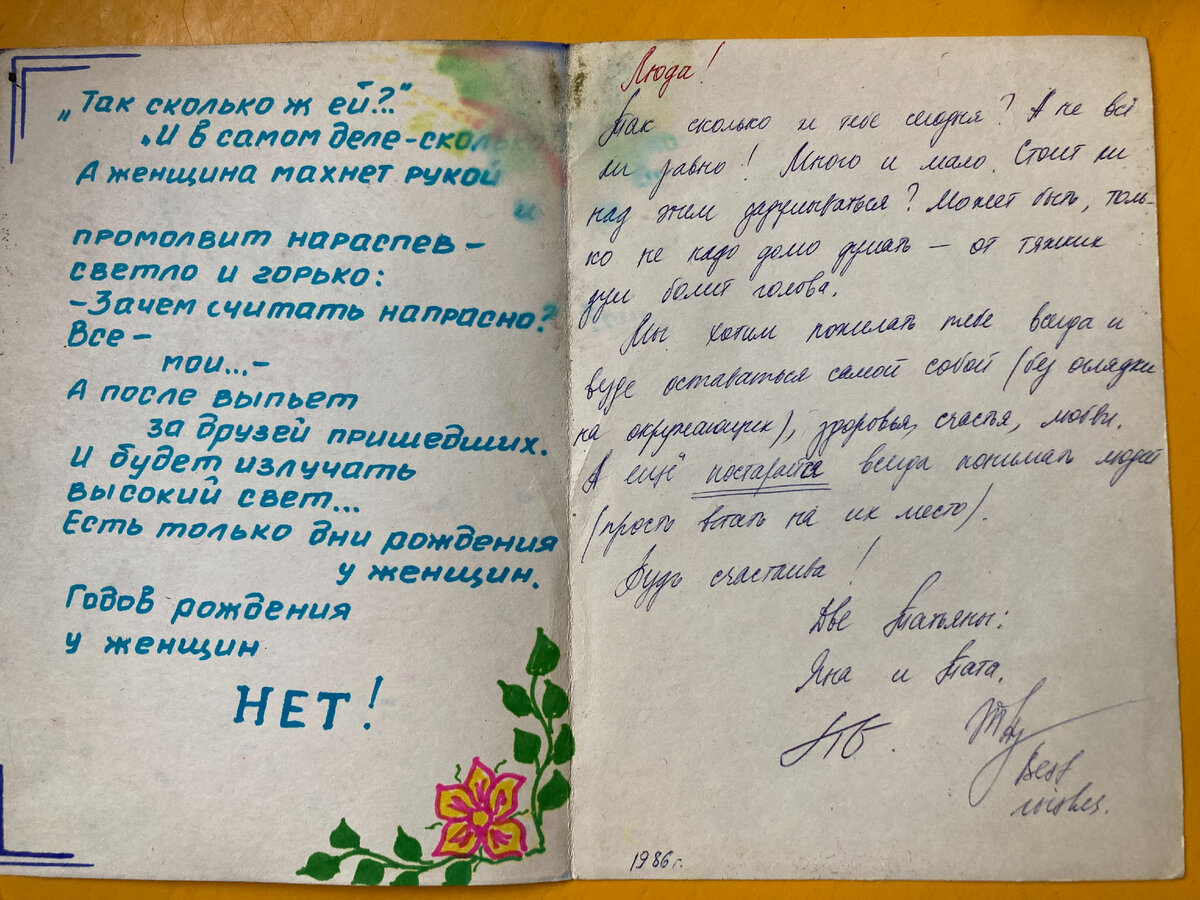 „Так сколько ж ей?.."
„И в самом деле-сколько
А женщина махнет рукой
и
промолвит нараспев –
светло и горько:
-Зачем считать напрасно?
Все –
мои...-
А после выпьет
за друзей пришедших.
И будет излучать
высокий свет...
Есть только дни рождения
у женщин.
Годов рождения
у женщин
НЕТ!
Люда!
Так сколько и тебе сегодня? А не всё
ли равно! Много и мало. Стоит ли
над этим задумываться? Может быть, толь-
ко не надо долго думать – от тяжких
дум болит голова.
Мы хотим пожелать тебе всегда и
везде оставаться самой собой (без оглядки
на окружающих), здоровья, счастья, любви.
А ещё постарайся всегда понимать людей
(просто встать на их место).
Будь счастлива!
Две Татьяны:
Яна и Тата.
Best
wishes.
1986 г.